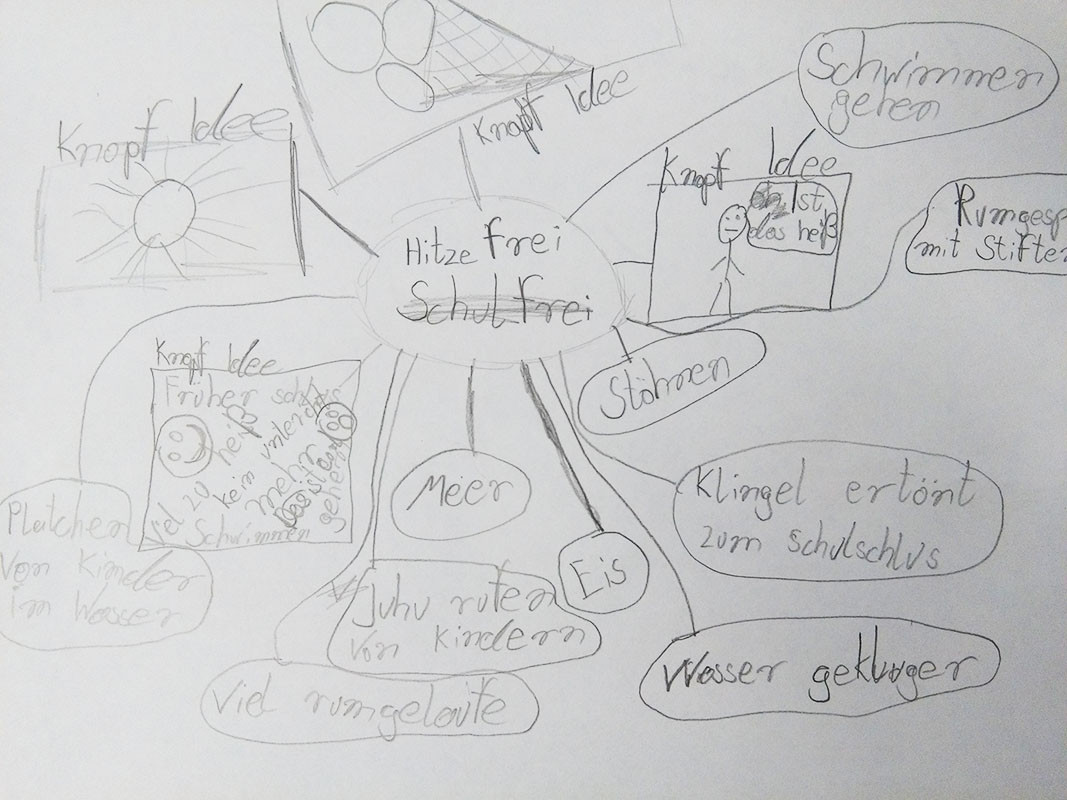 Knopf Idee
Knopf Idee
Schwimmen
gehen
Knopf Idee
Ist
das heiß
Rumgesp
mit Stifte
Hitze frei
Schul frei
Stöhnen
Knopf Idee
Früher schluss
heiß
kein unterricht
mehr
Viel zu
Schwimmen
gehen
Meer
Eis
Klingel ertönt
zum schulschlus
Platchen
Von Kinder
im Wasser
Juhu rufen
Von Kindern
Viel rumgelaufe
Wasser